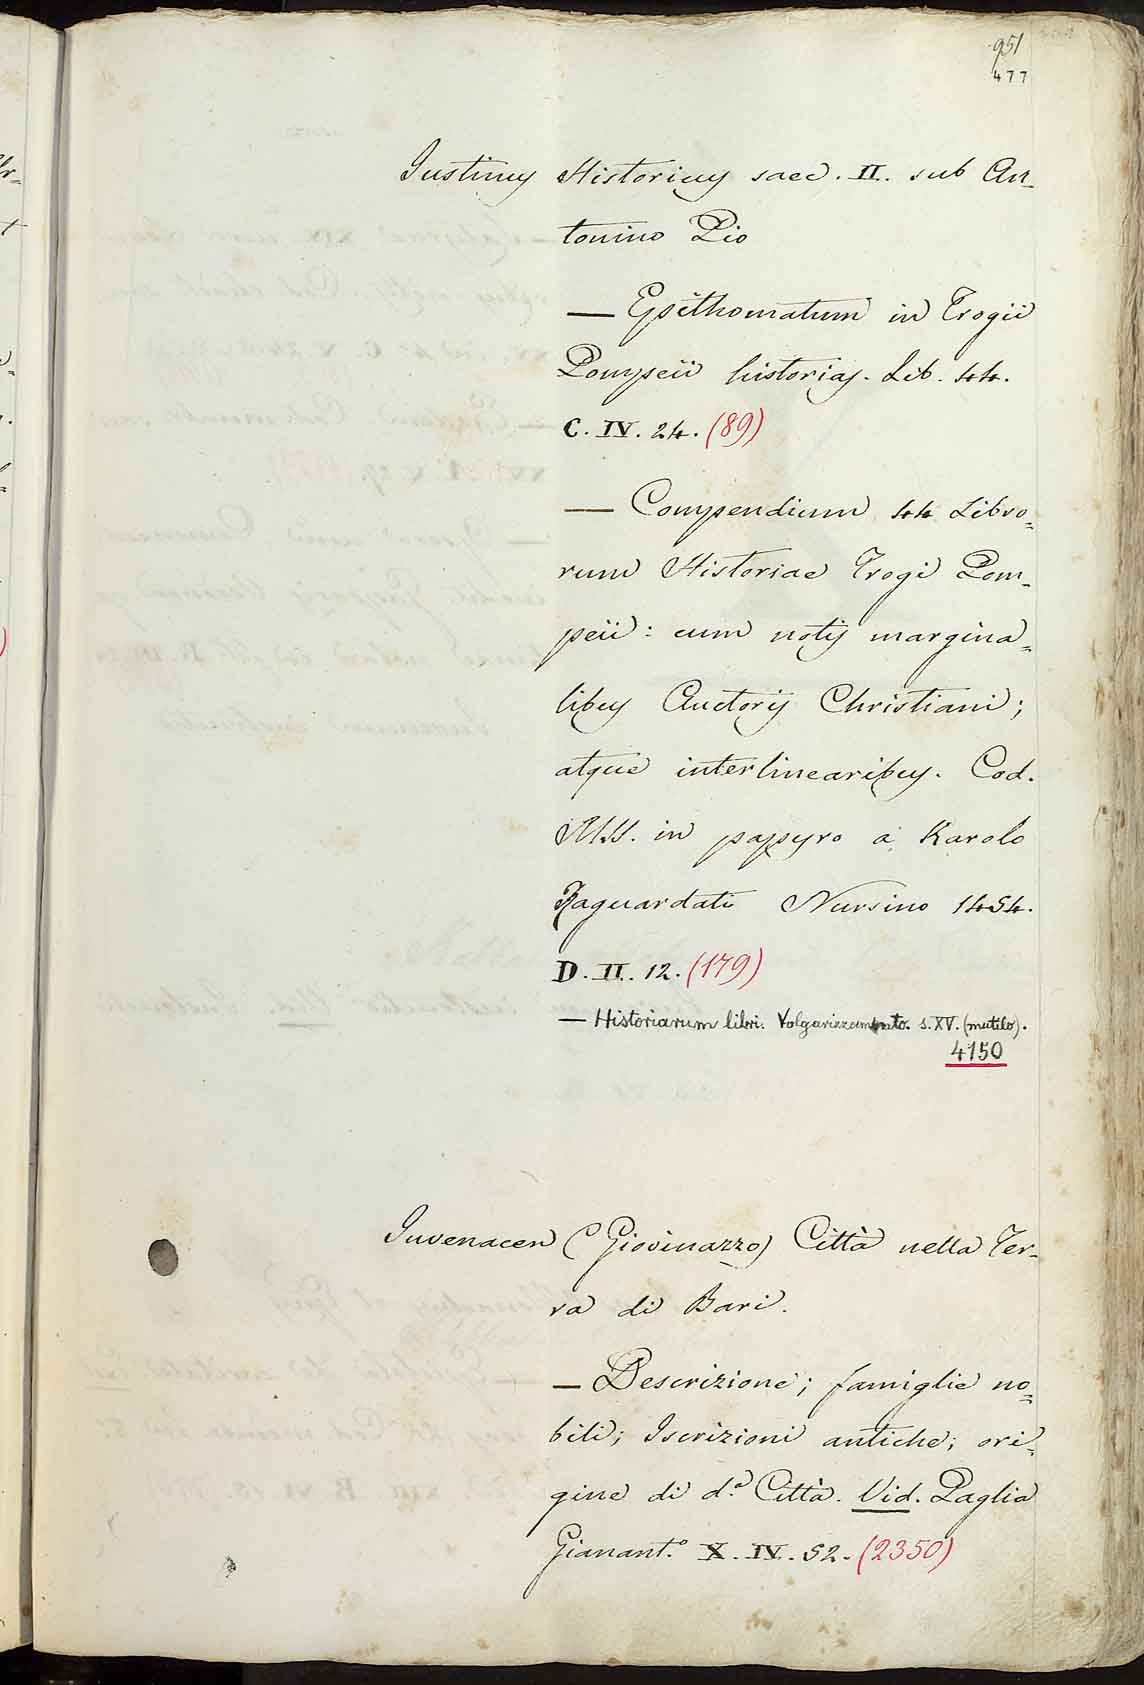 951
477
Iustinus Historicus saec. II. sub An-
tonino Pio
— Epithomatum in Trogii
Pompeii historias. Lib. 44.
C. IV. 24. (89)
— Compendium 44 Libro=
rum Historiae Trogi Pom=
peii: cum notis margina=
libus Auctoris Christiani;
atque interlinearibus. Cod.
MSS. in papyro a Karolo
Raguardati Nursino 1454.
D. II. 12. (179)
— Historiarum libri. Volgarizzamento. s. XV. (mutilo).
4150
Iuvenacen (Giovinazzo) Città nella Ter-
ra di Bari.
— Descrizione; famiglie no=
bili; Iscrizioni antiche; ori=
gine di d.ª Città. Vid. Paglia
Gianant.º X. IV. 52. (2350)